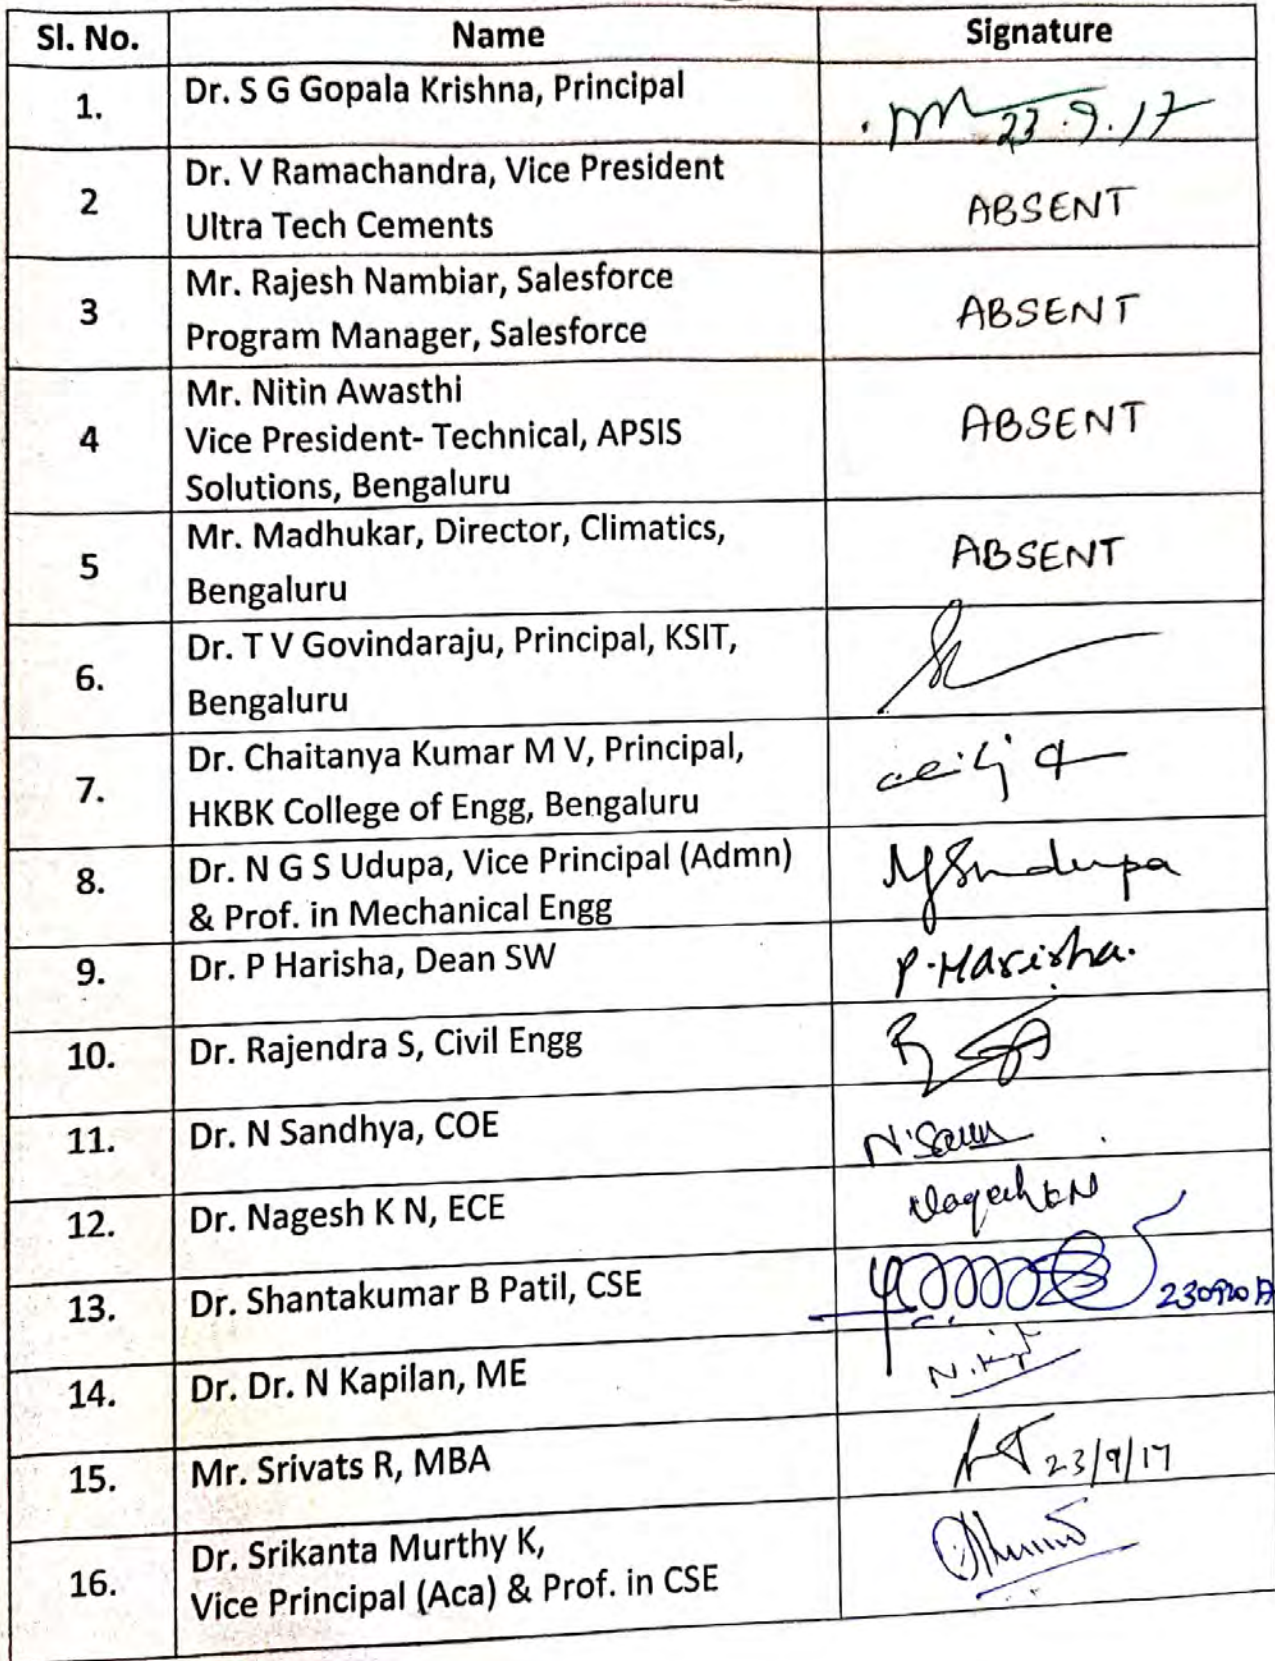 Sl. No. Name Signature
1. Dr. S G Gopala Krishna, Principal 23.9.17
2 Dr. V Ramachandra, Vice President
Ultra Tech Cements ABSENT
3 Mr. Rajesh Nambiar, Salesforce
Program Manager, Salesforce ABSENT
4 Mr. Nitin Awasthi
Vice President- Technical, APSIS
Solutions, Bengaluru ABSENT
5 Mr. Madhukar, Director, Climatics,
Bengaluru ABSENT
6. Dr. T V Govindaraju, Principal, KSIT,
Bengaluru
7. Dr. Chaitanya Kumar M V, Principal,
HKBK College of Engg, Bengaluru
8. Dr. N G S Udupa, Vice Principal (Admn)
& Prof. in Mechanical Engg
9. Dr. P Harisha, Dean SW P. Harisha.
10. Dr. Rajendra S, Civil Engg
11. Dr. N Sandhya, COE
12. Dr. Nagesh K N, ECE Nagesh KN
13. Dr. Shantakumar B Patil, CSE
14. Dr. Dr. N Kapilan, ME
15. Mr. Srivats R, MBA 23/9/17
16. Dr. Srikanta Murthy K,
Vice Principal (Aca) & Prof. in CSE